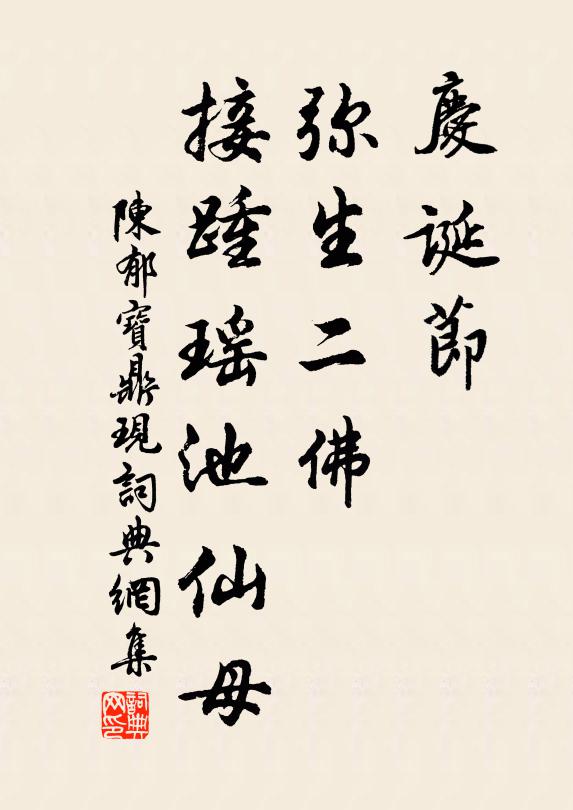 慶誕節
弥生二佛
接踵瑶池仙母
陳郁寶鼎現詞典網集
詞典网印